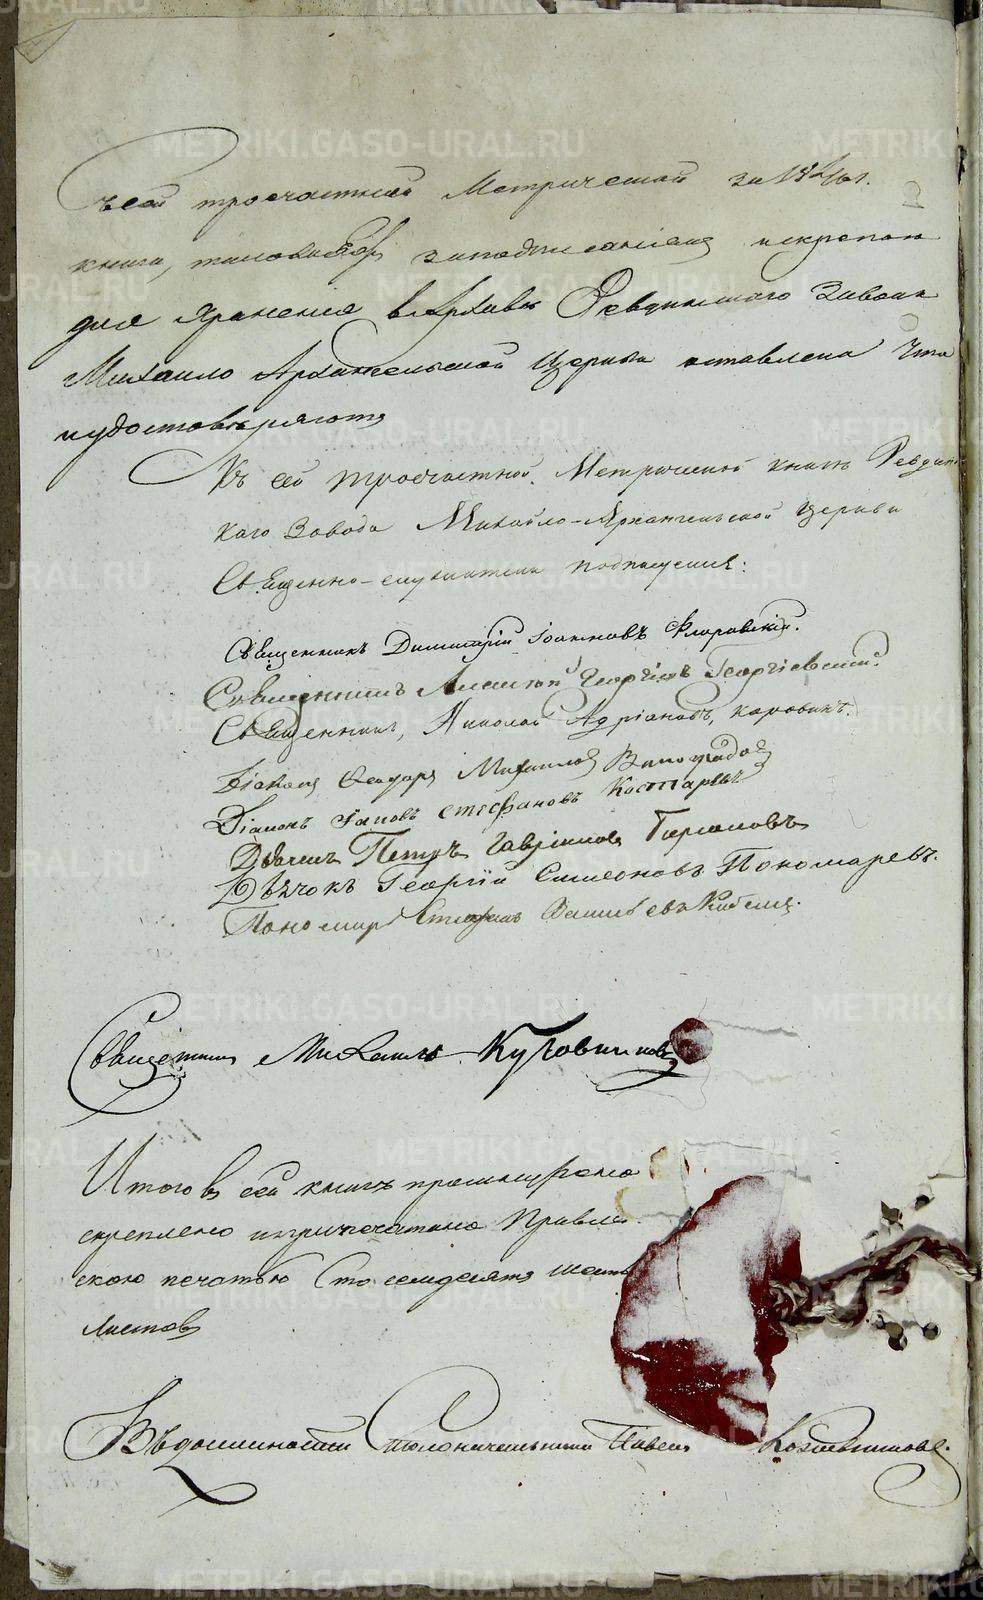 Съ сей троечастной Метрической за 184
книги, таковаяже за подписаніемъ и скрепою
для храненія в Архивѣ Ревдинскаго Завода
Михаило Архангельской Церкви оставлена Что
и удостовѣряютъ
Къ сей троечастной Метрической книгѣ Ревдинс
каго Завода Михайло-Архангельской церкви
Священно-служители подписуемся:
Священникъ Димитрій Іоанновъ Флоровскій.
Священникъ Алексѣй Георгіевъ Георгіевскій.
Священникъ, Николай Адріановъ, Коровинъ.
Діаконъ Ѳеодоръ Михаиловъ Виноградовъ
Діаконъ Іаковъ Стефановъ Костаревъ
Дьячекъ Петръ Гавріиловъ
Дьячокъ Георгій Симеоновъ Пономаревъ.
Пономарь Стефанъ
Священникъ Михаилъ Кутовщиковъ
Итого в сей книгѣ прошнуровано
скреплено и припечатано Правлен
скою печатью Сто семдесятъ шесть
листовъ
Столоначальникъ Павелъ Кожевниковъ.
METRIKI.GASO-URAL.RU